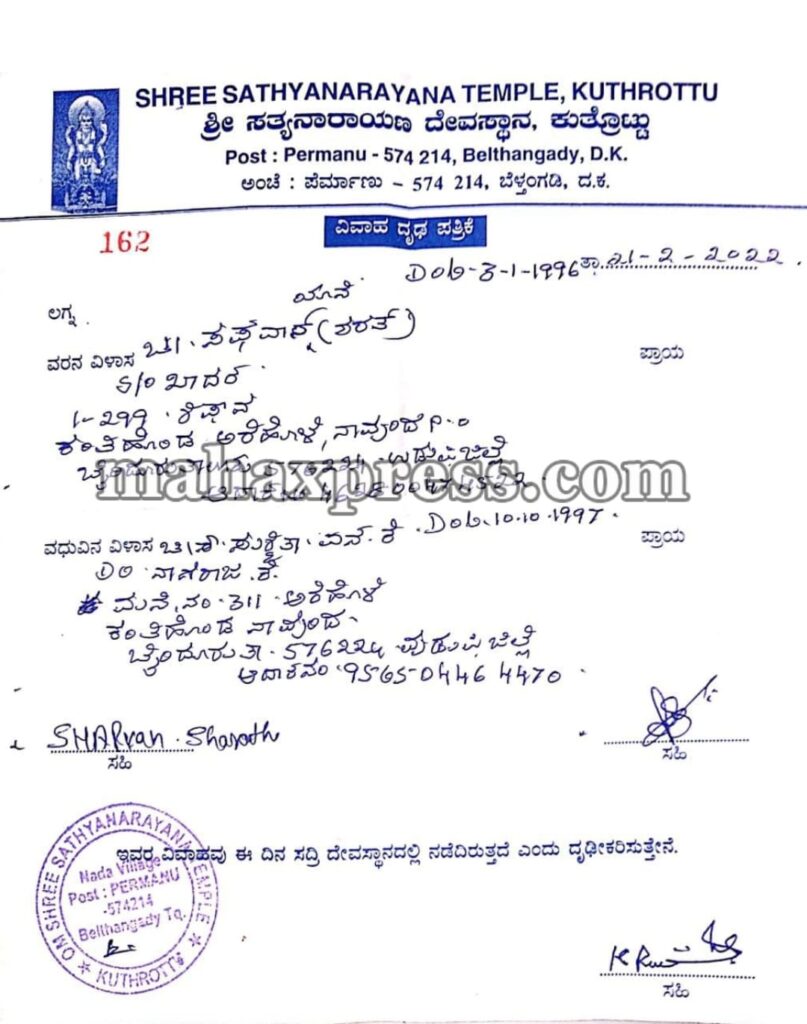 SHREE SATHYANARAYANA TEMPLE, KUTHROTTU
ಶ್ರೀ ಸತ್ಯನಾರಾಯಣ ದೇವಸ್ಥಾನ, ಕುತ್ರೊಟ್ಟು
Post : Permanu - 574 214, Belthangady, D.K.
ಅಂಚೆ : ಪೆರ್ಮಾಣು - 574 214, ಬೆಳ್ತಂಗಡಿ, ದ.ಕ.
162
ವಿವಾಹ ದೃಢ ಪತ್ರಿಕೆ
DOb-3-1-1996 ತಾ. 21-2-2022.
ಯಾನೆ
ಲಗ್ನ
ವರನ ವಿಳಾಸ (ಶರತ್) ಪ್ರಾಯ
S/O ಖಾದರ್
1-299
ಕಂತಿಹೊಂಡ ಅರೆಹೊಳೆ, ನಾವುಂದ P.O
576224 ಉಡುಪಿ ಜಿಲ್ಲೆ
mahaxpress.com
ವಧುವಿನ ವಿಳಾಸ DOb.10.10.1997. ಪ್ರಾಯ
D/O ನಾಗರಾಜ ಕೆ.
ಮನೆ ನಂ 311 ಅರೆಹೊಳೆ
ಕಂತಿಹೊಂಡ ನಾವುಂದ
ಬೈಂದೂರು ತಾ. 576224 ಜಿಲ್ಲೆ
9565 0446 4470
Sharath
ಸಹಿ ಸಹಿ
ಇವರ ವಿವಾಹವು ಈ ದಿನ ಸದ್ರಿ ದೇವಸ್ಥಾನದಲ್ಲಿ ನಡೆದಿರುತ್ತದೆ ಎಂದು ದೃಢೀಕರಿಸುತ್ತೇನೆ.
OM SHREE SATHYANARAYANA TEMPLE
Nada Village
Post : PERMANU
-574214
Belthangady Tq.
KUTHROTTU
ಸಹಿ